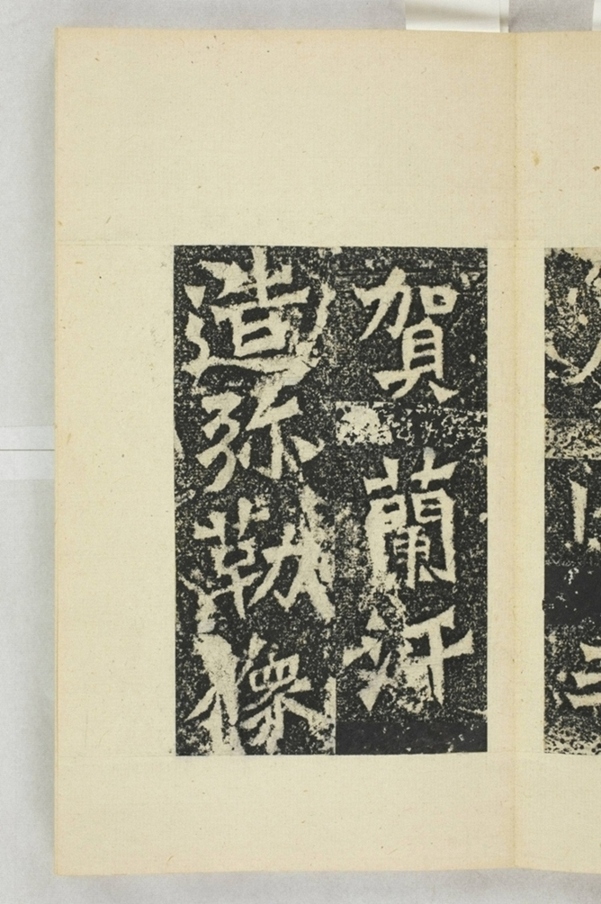 賀蘭汗
造弥勒像